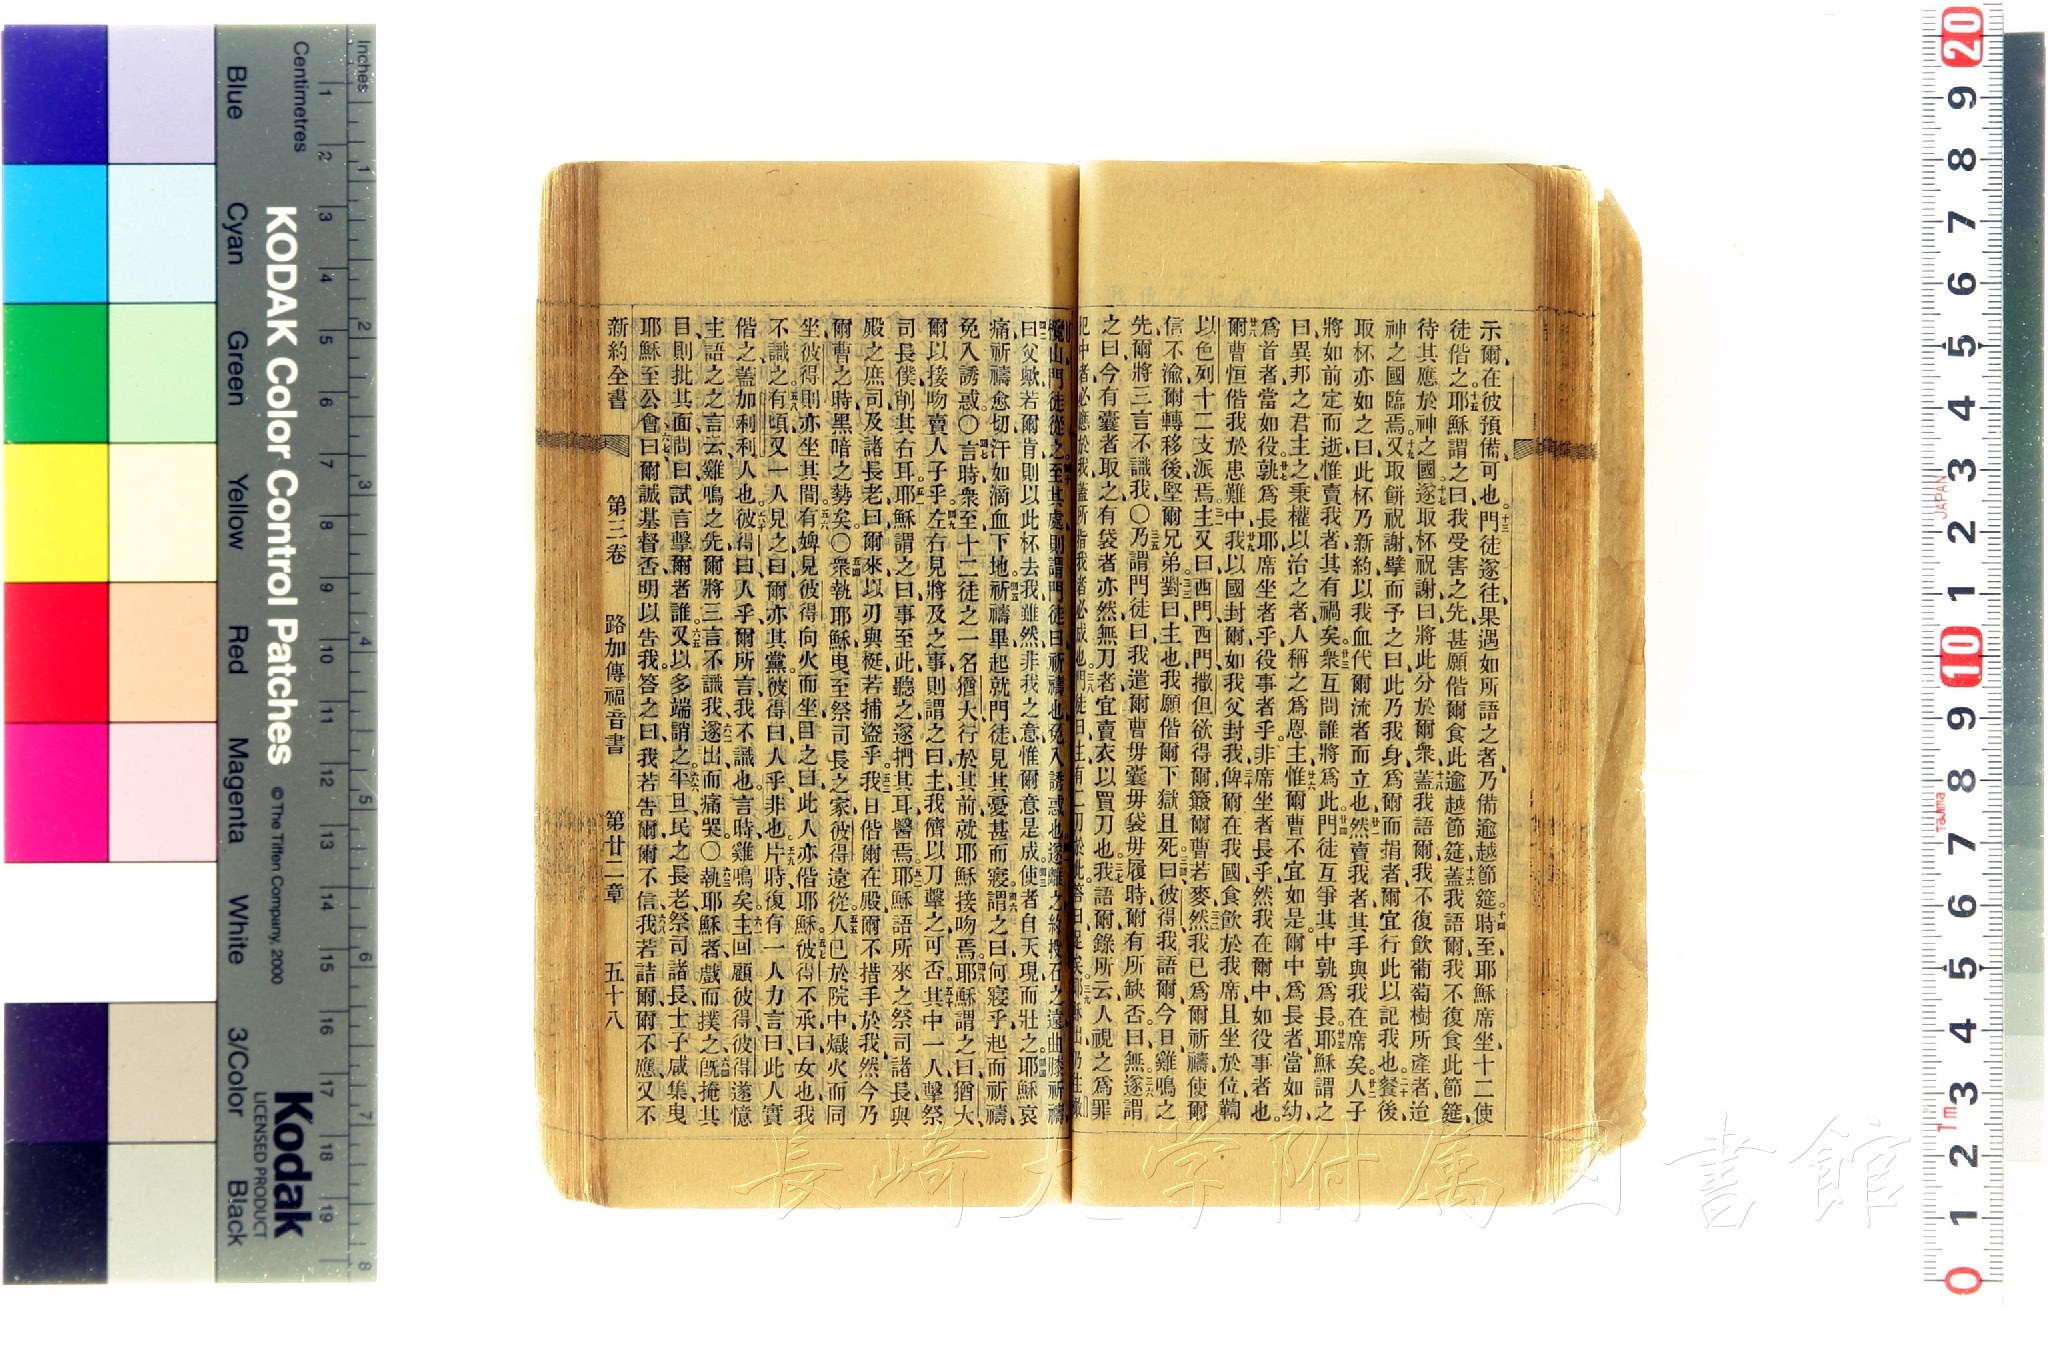 示爾在彼預備可也門徒遂往果遇如所語之者乃備逾越節筵時至耶穌席坐十二使
徒偕之耶穌謂之曰我受害之先甚願偕爾食此逾越節筵蓋我語爾我不復食此節筵
待其應於神之國遂取杯祝謝曰將此分於爾衆蓋我語爾我不復飲葡萄樹所產者迨
神之國臨焉又取餅祝謝擘而予之曰此乃我身爲爾而捐者爾宜行此以記我也餐後
取杯亦如之曰此杯乃新約以我血代爾流者而立也然賣我者其手與我在席矣人子
將如前定而逝惟賣我者其有禍矣衆互問誰將爲此門徒互爭其中孰爲長耶穌謂之
曰異邦之君主之秉權以治之者人稱之爲恩主惟爾曹不宜如是爾中爲長者當如幼
爲首者當如役孰爲長耶席坐者乎役事者乎非席坐者長乎然我在爾中如役事者也
爾曹恒偕我於患難中我以國封爾如我父封我俾爾在我國食飲於我席且坐於位鞫
以色列十二支派焉主又曰西門西門撒但欲得爾簸爾曹若麥然我已爲爾祈禱使爾
信不渝爾轉移後堅爾兄弟對曰主也我願偕爾下獄且死曰彼得我語爾今日雞鳴之
先爾將三言不識我〇乃謂門徒曰我遣爾曹毋囊毋袋毋履時爾有所缺否曰無遂謂
之曰今有囊者取之有袋者亦然無刀者宜賣衣以買刀也我語爾錄所云人視之爲罪
犯中者必應於我蓋所指我者必成也門徒曰主有二刀於此答曰足矣耶穌出仍往橄
欖山門徒從之至其處則謂門徒曰祈禱也免入誘惑也遂離之約投石之遠曲膝祈禱
曰父歟若爾肯則以此杯去我雖然非我之意惟爾意是成使者自天現而壯之耶穌哀
痛祈禱愈切汗如滴血下地祈禱畢起就門徒見其憂甚而寢謂之曰何寢乎起而祈禱
免入誘惑〇言時衆至十二徒之一名猶大行於其前就耶穌接吻焉耶穌謂之曰猶大
爾以接吻賣人子乎左右見將及之事則謂之曰主我儕以刀擊之可否其中一人擊祭
司長僕削其右耳耶穌謂之曰事至此聽之遂捫其耳醫焉耶穌語所來之祭司諸長與
殿之庶司及諸長老曰爾來以刃與梃若捕盜乎我日偕爾在殿爾不措手於我然今乃
爾曹之時黑暗之勢矣〇衆執耶穌曳至祭司長之家彼得遠從人已於院中熾火而同
坐彼得則亦坐其間有婢見彼得向火而坐目之曰此人亦偕耶穌彼得不承曰女也我
不識之有頃又一人見之曰爾亦其黨彼得曰人乎非也片時復有一人力言曰此人實
偕之蓋加利利人也彼得曰人乎爾所言我不識也言時雞鳴矣主回顧彼得彼得遂憶
主語之之言云雞鳴之先爾將三言不識我遂出而痛哭〇執耶穌者戲而撲之旣掩其
目則批其面問曰試言擊爾者誰又以多端誚之平旦民之長老祭司諸長士子咸集曳
耶穌至公會曰爾誠基督否明以告我答之曰我若吿爾爾不信我若詰爾爾不應又不
新約全書 第三卷 路加傳福音書 第廿二章 五十八
長崎大学附属図書館
KODAK Color Control Patches © The Tiffen Company, 2000
Kodak
LICENSED PRODUCT
Inches
Centimetres
Blue Cyan Green Yellow Red Magenta White 3/Color Black
1 2 3 4 5 6 7 8 9 10 11 12 13 14 15 16 17 18 19
1 2 3 4 5 6 7 8
20 9 8 7 6 5 4 3 2 1 10 9 8 7 6 5 4 3 2 1 0
JAPAN
Tajima
Tm